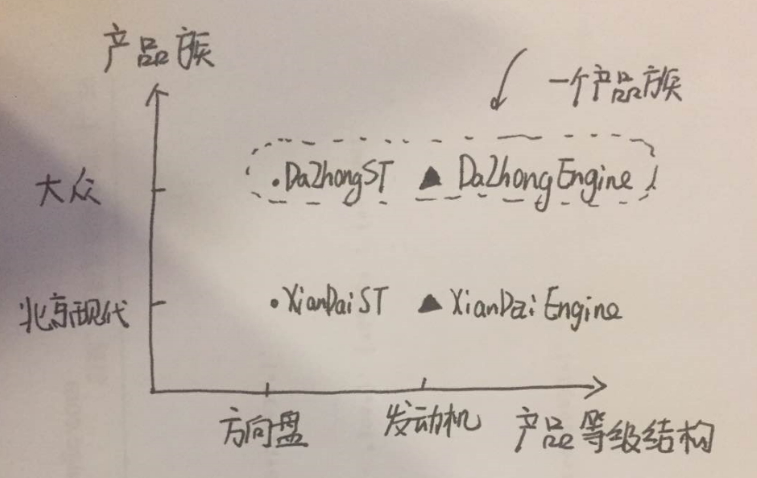 产品族
一个产品族
大众
DaZhongST
DaZhongEngine
北京现代
XianDaiST
XianDaiEngine
方向盘
发动机
产品等级结构